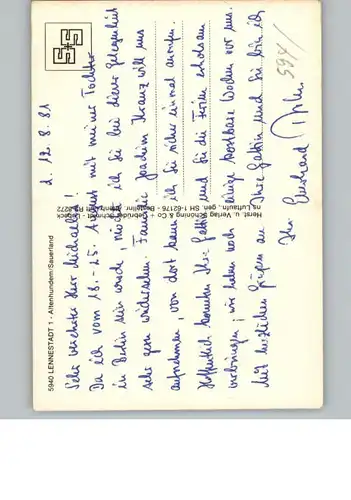 5940 LENNESTADT 1 - Altenhundem/Sauerland
d. 12.8.81
Sehr verehrter Herr Michaelis!
Da ich vom 18.-25. August mit meiner Tochter
in Berlin sein werde, möchte ich Sie bei dieser Gelegenheit
sehr gern wiedersehen. Familie Joachim Kranz will uns
aufnehmen, von dort kann ich Sie sicher einmal anrufen.
Hoffentlich konnten Ihre Gattin und Sie die Ferien erholsam
verbringen; wir haben noch einige kostbare Wochen vor uns.
Mit herzlichen Grüßen an Ihre Gattin und Sie bin ich
Ihr Eberhard
Herst. u. Verlag Schöning & Co + Gebrüder Schmidt - Lübeck
594/